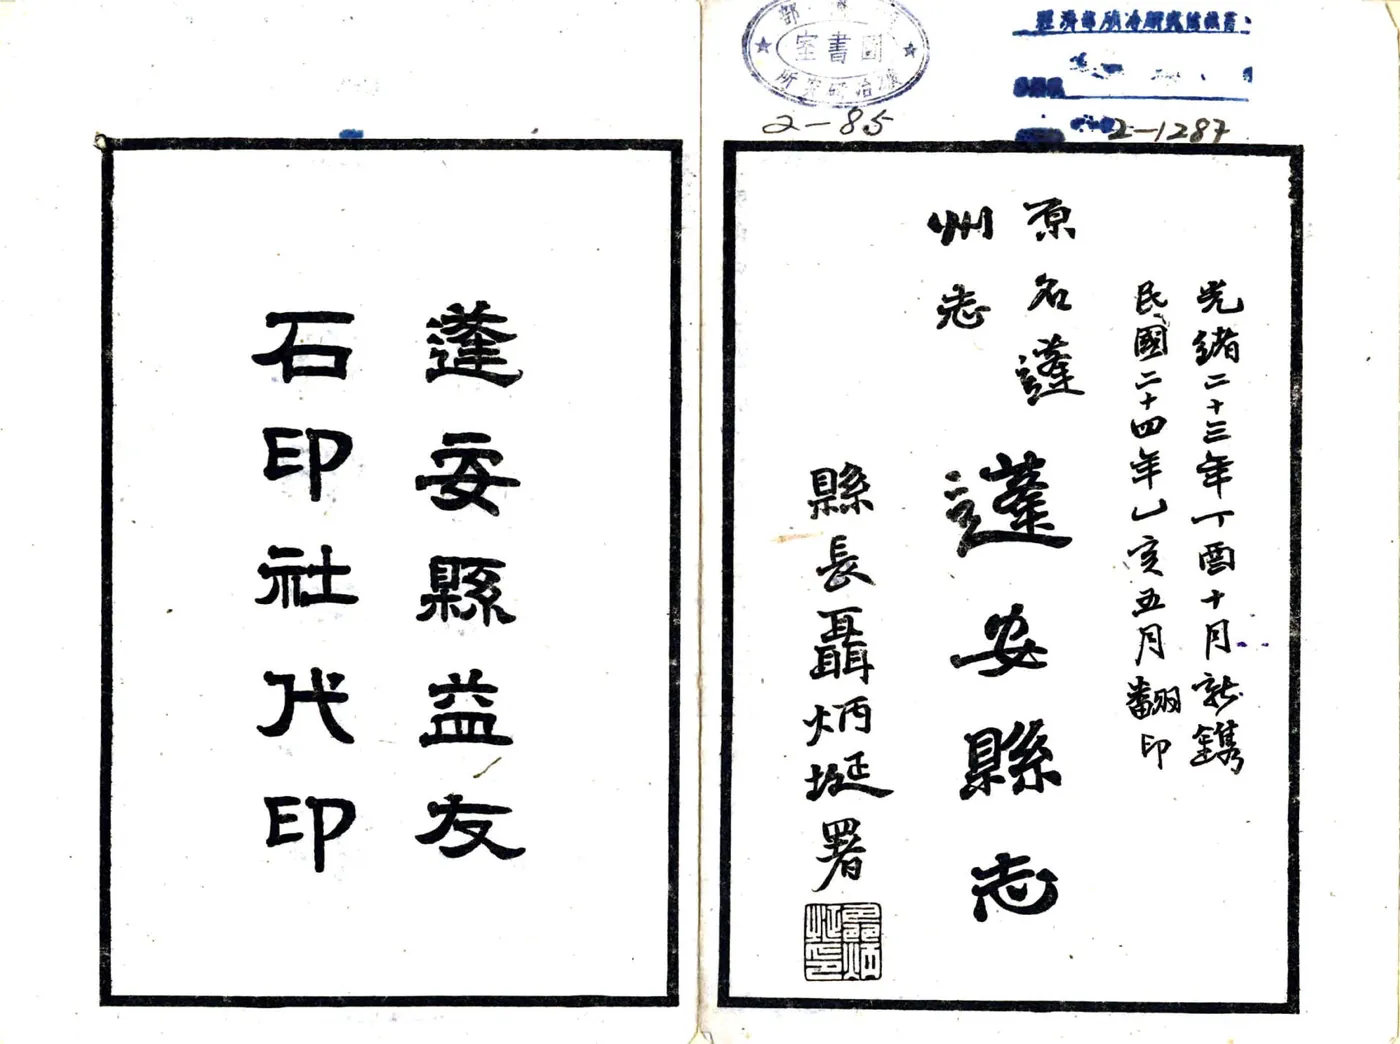 圖書室
2-85
2-1287
光緒二十三年丁酉十月新鐫
民國二十四年乙亥五月翻印
原名蓬
州志
蓬安縣志
縣長聶炳埏署
蓬安縣益友
石印社代印